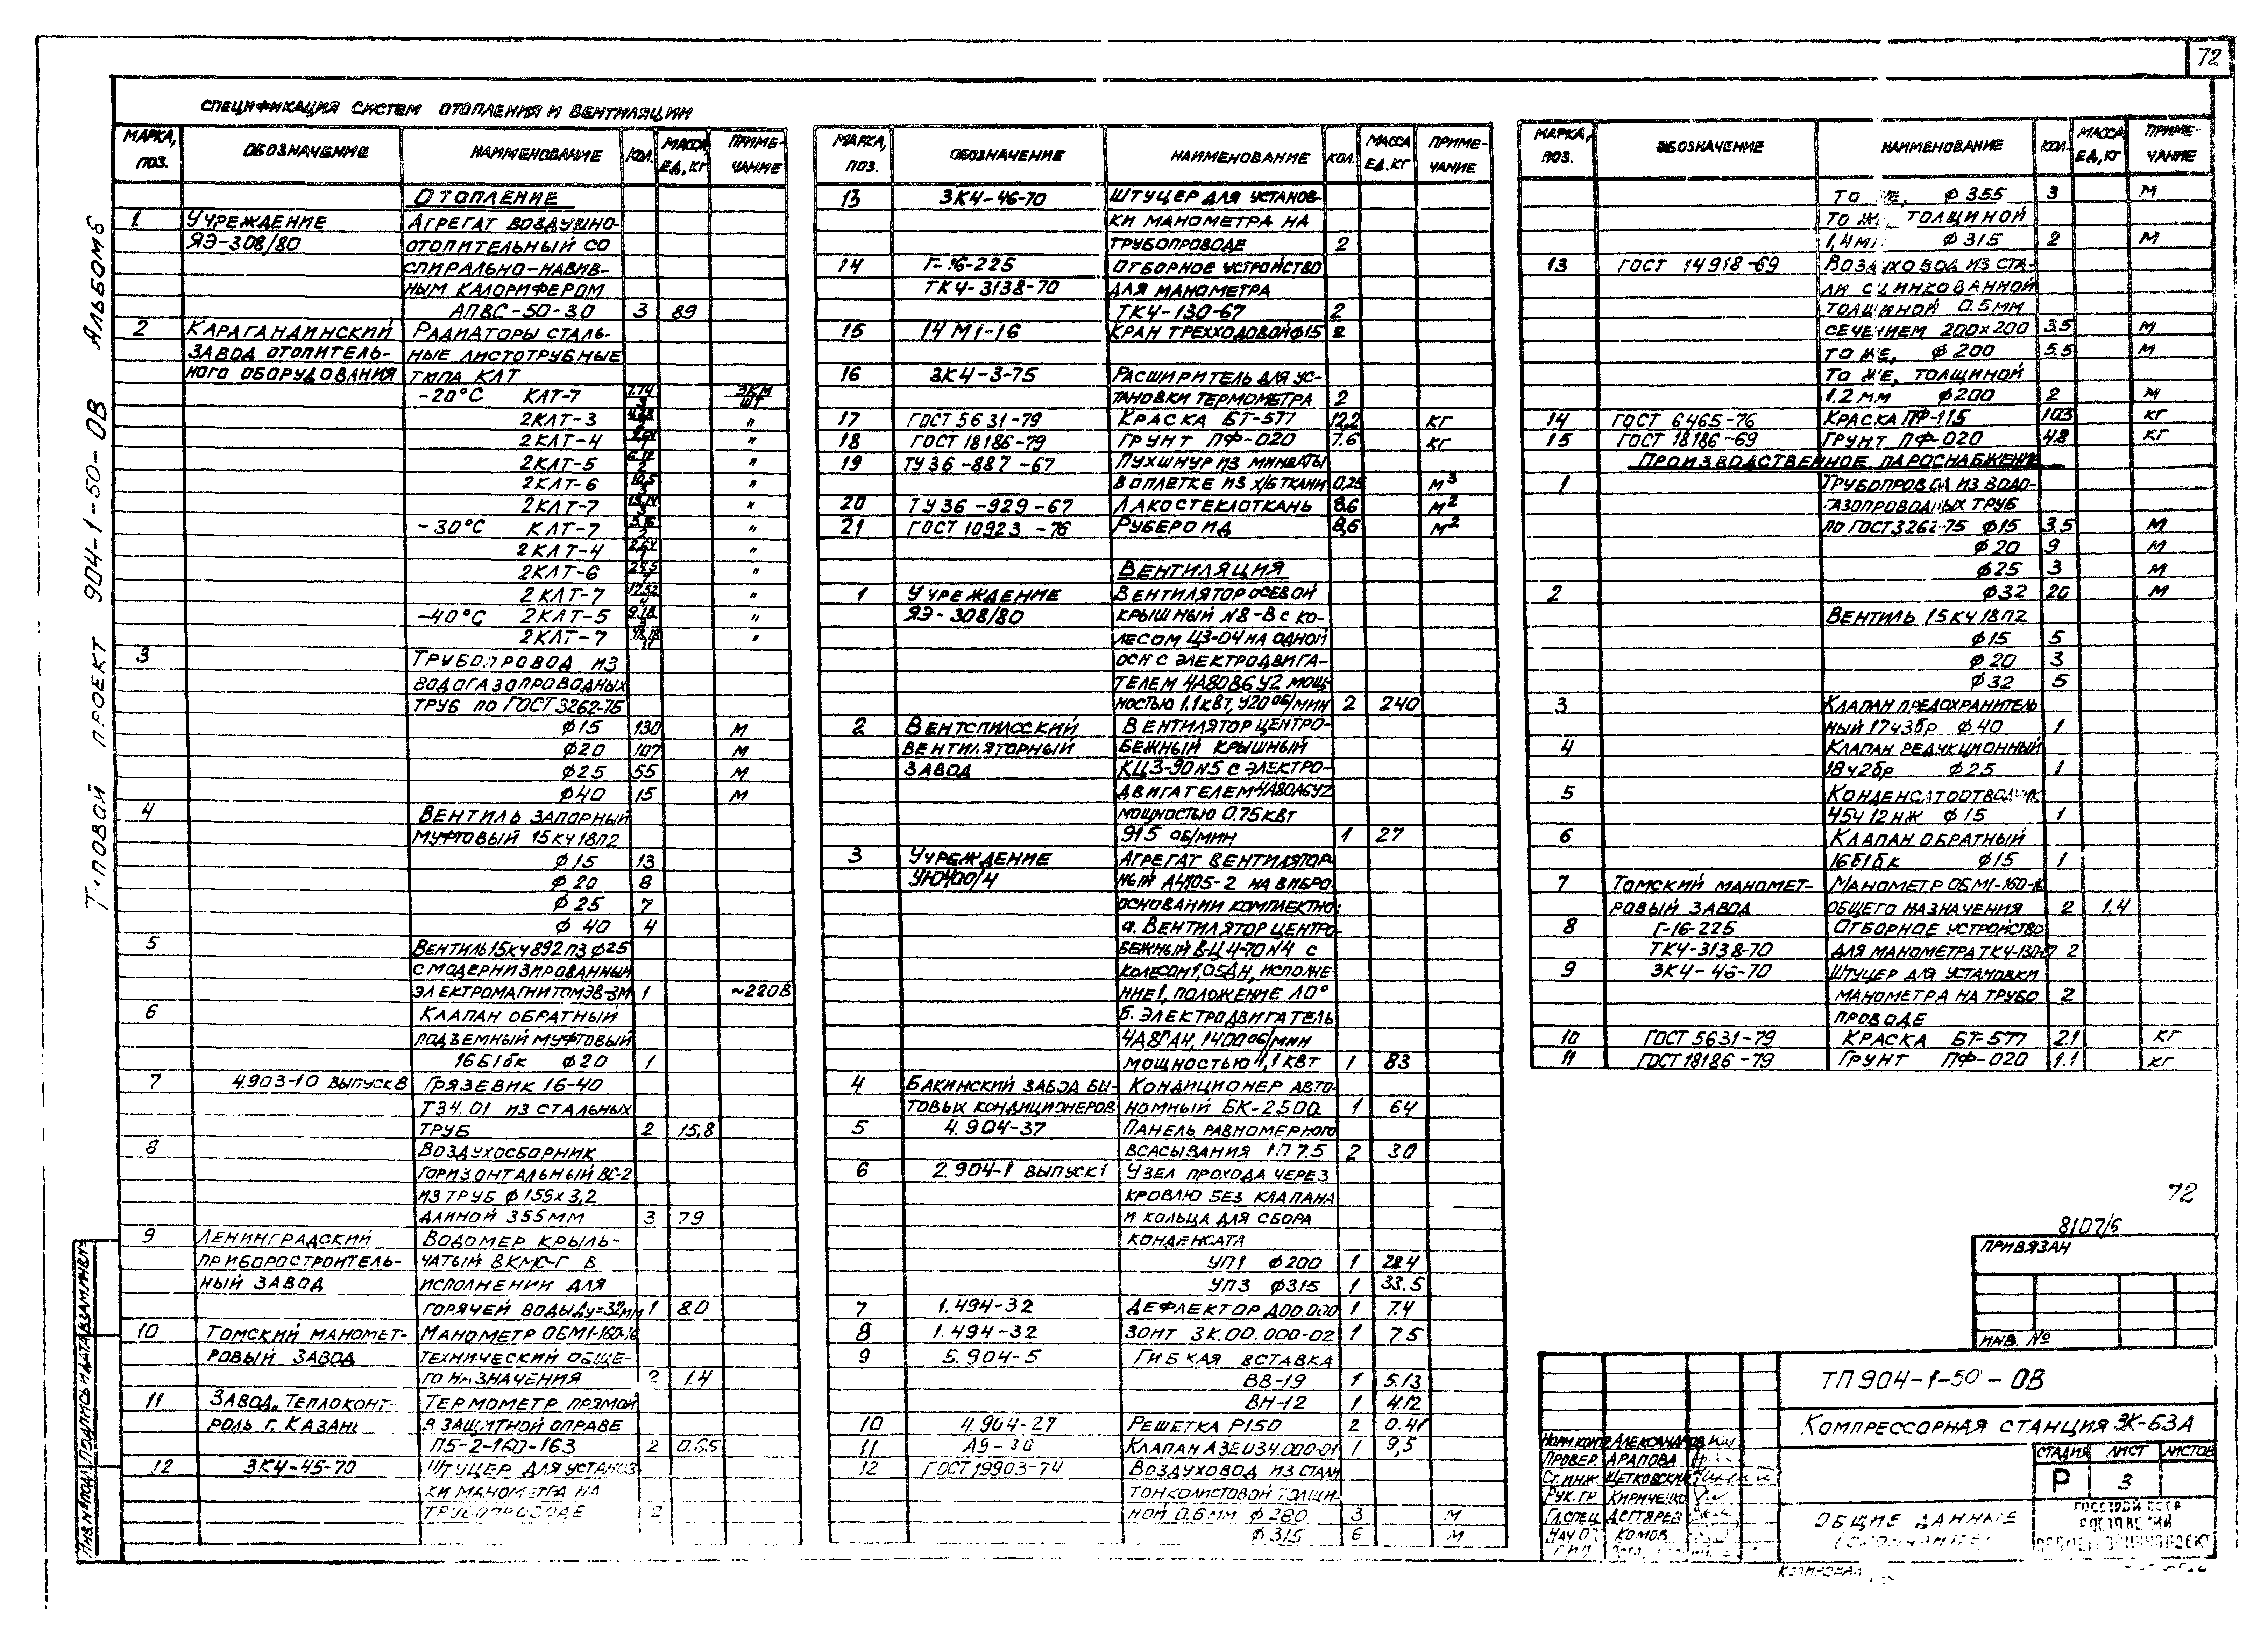 72
СПЕЦИФИКАЦИЯ СИСТЕМ ОТОПЛЕНИЯ И ВЕНТИЛЯЦИИ
МАРКА, ПОЗ. ОБОЗНАЧЕНИЕ НАИМЕНОВАНИЕ КОЛ. МАССА ЕД, КГ ПРИМЕ-ЧАНИЕ
ОТОПЛЕНИЕ
1 УЧРЕЖДЕНИЕ АГРЕГАТ ВОЗДУШНО-
ЯЭ-308/80 ОТОПИТЕЛЬНЫЙ СО
СПИРАЛЬНО-НАВИВ-
НЫМ КАЛОРИФЕРОМ
АПВС-50-30 3 89
2 КАРАГАНДИНСКИЙ РАДИАТОРЫ СТАЛЬ-
ЗАВОД ОТОПИТЕЛЬ- НЫЕ ЛИСТОТРУБНЫЕ
НОГО ОБОРУДОВАНИЯ ТИПА КЛТ
-20°С КЛТ-7 7.74/3 ЭКМ/ШТ
2КЛТ-3 "
2КЛТ-4 "
2КЛТ-5 "
2КЛТ-6 "
2КЛТ-7 "
-30°С КЛТ-7 "
2КЛТ-4 "
2КЛТ-6 "
2КЛТ-7 "
-40°С 2КЛТ-5 "
2КЛТ-7 "
3 ТРУБОПРОВОД ИЗ
ВОДОГАЗОПРОВОДНЫХ
ТРУБ ПО ГОСТ 3262-75
Ф15 130 М
Ф20 107 М
Ф25 55 М
Ф40 15 М
4 ВЕНТИЛЬ ЗАПОРНЫЙ
МУФТОВЫЙ 15КЧ18П2
Ф15 13
Ф20 8
Ф25 7
Ф40 4
5 ВЕНТИЛЬ 15КЧ892П3 Ф25
С МОДЕРНИЗИРОВАННЫМ
ЭЛЕКТРОМАГНИТОМ ЭВ-3М 1 ~220В
6 КЛАПАН ОБРАТНЫЙ
ПОДЪЕМНЫЙ МУФТОВЫЙ
16Б1бк Ф20 1
7 4.903-10 ВЫПУСК 8 ГРЯЗЕВИК 16-40
Т34.01 ИЗ СТАЛЬНЫХ
ТРУБ 2 15,8
8 ВОЗДУХОСБОРНИК
ГОРИЗОНТАЛЬНЫЙ ВС-2
ИЗ ТРУБ Ф159х3,2
ДЛИНОЙ 355ММ 3 79
9 ЛЕНИНГРАДСКИЙ ВОДОМЕР КРЫЛЬ-
ПРИБОРОСТРОИТЕЛЬ- ЧАТЫЙ ВКМС-Г В
НЫЙ ЗАВОД ИСПОЛНЕНИИ ДЛЯ
ГОРЯЧЕЙ ВОДЫ Ду=32мм 1 8.0
10 ТОМСКИЙ МАНОМЕТ- МАНОМЕТР ОБМ1-160-16
РОВЫЙ ЗАВОД ТЕХНИЧЕСКИЙ ОБЩЕ-
ГО НАЗНАЧЕНИЯ 2 1.4
11 ЗАВОД „ТЕПЛОКОНТ- ТЕРМОМЕТР ПРЯМОЙ
РОЛЬ г. КАЗАНЬ В ЗАЩИТНОЙ ОПРАВЕ
П5-2-160-163 2 0.65
12 ЗК4-45-70 ШТУЦЕР ДЛЯ УСТАНОВ
КИ МАНОМЕТРА НА
ТРУБОПРОВОДЕ 2
МАРКА, ПОЗ. ОБОЗНАЧЕНИЕ НАИМЕНОВАНИЕ КОЛ. МАССА ЕД. КГ ПРИМЕ-ЧАНИЕ
13 ЗК4-46-70 ШТУЦЕР ДЛЯ УСТАНОВ-
КИ МАНОМЕТРА НА
ТРУБОПРОВОДЕ 2
14 Г-16-225 ОТБОРНОЕ УСТРОЙСТВО
ТК4-3138-70 ДЛЯ МАНОМЕТРА
ТК4-130-67 2
15 14М1-16 КРАН ТРЕХХОДОВОЙ Ф15 2
16 ЗК4-3-75 РАСШИРИТЕЛЬ ДЛЯ УС-
ТАНОВКИ ТЕРМОМЕТРА 2
17 ГОСТ 5631-79 КРАСКА БТ-577 12,2 КГ
18 ГОСТ 18186-79 ГРУНТ ПФ-020 7.6 КГ
19 ТУ36-887-67 ПУХШНУР ИЗ МИНВАТЫ
В ОПЛЕТКЕ ИЗ Х/Б ТКАНИ 0,25 М³
20 ТУ36-929-67 ЛАКОСТЕКЛОТКАНЬ 8.6 М²
21 ГОСТ 10923-76 РУБЕРОИД 8,6 М²
ВЕНТИЛЯЦИЯ
1 УЧРЕЖДЕНИЕ ВЕНТИЛЯТОР ОСЕВОЙ
ЯЭ-308/80 КРЫШНЫЙ N8-В С КО-
ЛЕСОМ Ц3-04 НА ОДНОЙ
ОСИ С ЭЛЕКТРОДВИГА-
ТЕЛЕМ 4А80В6У2 МОЩ-
НОСТЬЮ 1.1КВТ, 920 ОБ/МИН 2 240
2 ВЕНТСПИЛССКИЙ ВЕНТИЛЯТОР ЦЕНТРО-
ВЕНТИЛЯТОРНЫЙ БЕЖНЫЙ КРЫШНЫЙ
ЗАВОД КЦ3-90 N5 С ЭЛЕКТРО-
ДВИГАТЕЛЕМ 4А80А6У2
МОЩНОСТЬЮ 0.75КВТ
915 ОБ/МИН 1 27
3 УЧРЕЖДЕНИЕ АГРЕГАТ ВЕНТИЛЯТОР-
УЮ400/4 НЫЙ А4105-2 НА ВИБРО-
ОСНОВАНИИ КОМПЛЕКТНО:
а. ВЕНТИЛЯТОР ЦЕНТРО-
БЕЖНЫЙ В-Ц4-70 N4 С
КОЛЕСОМ 1,05ДН, ИСПОЛНЕ-
НИЕ 1, ПОЛОЖЕНИЕ Л0°
б. ЭЛЕКТРОДВИГАТЕЛЬ
1400 ОБ/МИН
МОЩНОСТЬЮ 1,1 КВТ 1 83
4 БАКИНСКИЙ ЗАВОД БЫ- КОНДИЦИОНЕР АВТО-
ТОВЫХ КОНДИЦИОНЕРОВ НОМНЫЙ БК-2500 1 64
5 4.904-37 ПАНЕЛЬ РАВНОМЕРНОГО
ВСАСЫВАНИЯ 1П7.5 2 30
6 2.904-1 ВЫПУСК 1 УЗЕЛ ПРОХОДА ЧЕРЕЗ
КРОВЛЮ БЕЗ КЛАПАНА
И КОЛЬЦА ДЛЯ СБОРА
КОНДЕНСАТА
УП1 Ф200 1 28.4
УП3 Ф315 1 33.5
7 1.494-32 ДЕФЛЕКТОР Д00.000 1 7.4
8 1.494-32 ЗОНТ ЗК.00.000-02 1 7.5
9 5.904-5 ГИБКАЯ ВСТАВКА
ВВ-19 1 5.13
ВН-12 1 4.12
10 4.904-27 РЕШЕТКА Р150 2 0.41
11 А9-30 КЛАПАН АЗЕ034.000-01 1 9,5
12 ГОСТ 19903-74 ВОЗДУХОВОД ИЗ СТАЛИ
ТОНКОЛИСТОВОЙ ТОЛЩИ-
НОЙ 0.6ММ Ф280 3 М
Ф315 6 М
МАРКА, ПОЗ. ОБОЗНАЧЕНИЕ НАИМЕНОВАНИЕ КОЛ. МАССА ЕД, КГ ПРИМЕ-ЧАНИЕ
ТО ЖЕ, Ф355 3 М
ТО ЖЕ, ТОЛЩИНОЙ
1,4ММ Ф315 2 М
13 ГОСТ 14918-69 ВОЗДУХОВОД ИЗ СТА-
ЛИ ОЦИНКОВАННОЙ
ТОЛЩИНОЙ 0.5ММ
СЕЧЕНИЕМ 200х200 3.5 М
ТО ЖЕ, Ф200 5.5 М
ТО ЖЕ, ТОЛЩИНОЙ
1.2ММ Ф200 2 М
14 ГОСТ 6465-76 КРАСКА ПФ-115 10.3 КГ
15 ГОСТ 18186-69 ГРУНТ ПФ-020 4.8 КГ
ПРОИЗВОДСТВЕННОЕ ПАРОСНАБЖЕНИЕ
1 ТРУБОПРОВОД ИЗ ВОДО-
ГАЗОПРОВОДНЫХ ТРУБ
ПО ГОСТ 3262-75 Ф15 3,5 М
Ф20 9 М
Ф25 3 М
2 Ф32 20 М
ВЕНТИЛЬ 15КЧ18П2
Ф15 5
Ф20 3
Ф32 5
3 КЛАПАН ПРЕДОХРАНИТЕЛЬ
НЫЙ 17ч3бр Ф40 1
4 КЛАПАН РЕДУКЦИОННЫЙ
18ч2бр Ф25 1
5 КОНДЕНСАТООТВОДЧИК
45ч12нж Ф15 1
6 КЛАПАН ОБРАТНЫЙ
16Б1бк Ф15 1
7 ТОМСКИЙ МАНОМЕТ- МАНОМЕТР ОБМ1-160-16
РОВЫЙ ЗАВОД ОБЩЕГО НАЗНАЧЕНИЯ 2 1,4
8 Г-16-225 ОТБОРНОЕ УСТРОЙСТВО
ТК4-3138-70 ДЛЯ МАНОМЕТРА ТК4-130-67 2
9 ЗК4-46-70 ШТУЦЕР ДЛЯ УСТАНОВКИ
МАНОМЕТРА НА ТРУБО 2
ПРОВОДЕ
10 ГОСТ 5631-79 КРАСКА БТ-577 2.1 КГ
11 ГОСТ 18186-79 ГРУНТ ПФ-020 1.1 КГ
72
8107/5
ПРИВЯЗАН
ИНВ. №
ТП 904-1-50-ОВ
КОМПРЕССОРНАЯ СТАНЦИЯ ЗК-63А
СТАДИЯ ЛИСТ ЛИСТОВ
Р 3
НОРМ.КОНТР АЛЕКСАНДРОВ
ПРОВЕР. АРАПОВА
СТ. ИНЖ. ЩЕТКОВСКИЙ
РУК. ГР. КИРИЧЕНКО
ГЛ.СПЕЦ. ДЕГТЯРЕВ
НАЧ. КОМОВ
ГИП
ОБЩИЕ ДАННЫЕ
ГОССТРОЙ СССР
РОСТОВСКИЙ
КОПИРОВАЛ
ТИПОВОЙ ПРОЕКТ 904-1-50-ОВ АЛЬБОМ 5
ИНВ. № ПОДЛ. ПОДПИСЬ И ДАТА ВЗАМ. ИНВ. №